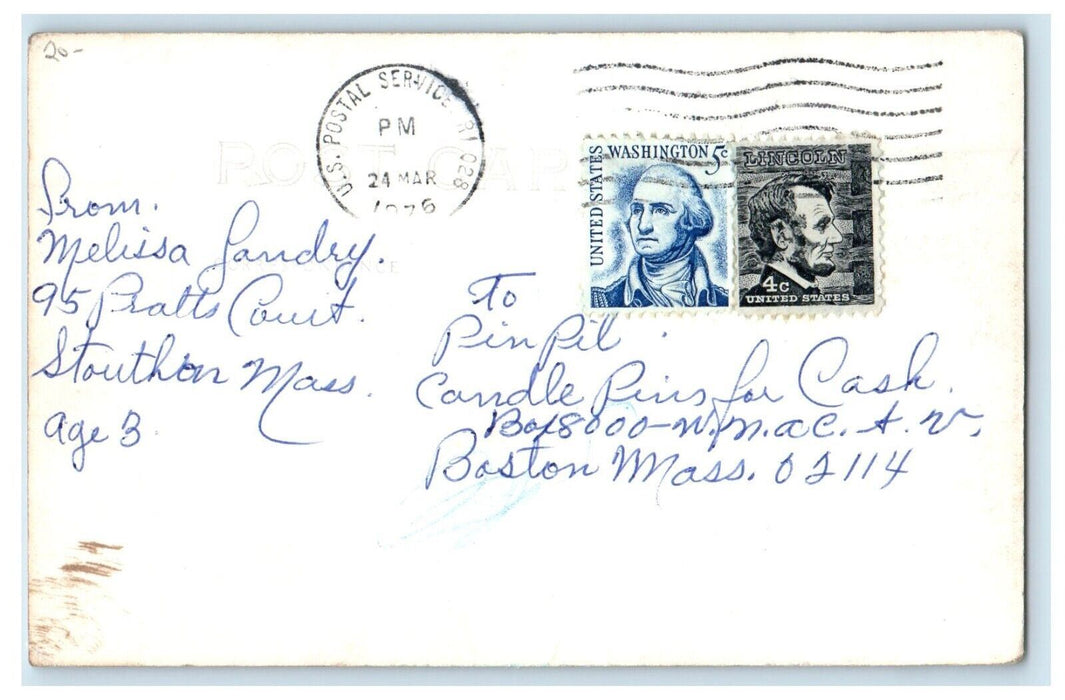 20-
U.S. POSTAL SERVICE RI 028
PM
24 MAR
1976
POST CAR
UNITED STATES
WASHINGTON 5c
LINCOLN
4c
UNITED STATES
From.
Melissa Landry.
95 Pratts Court.
Stouthon Mass.
age 3
To
Pin Pil
Candle Pins for Cash.
Box 8000-W.N.a C. t. v.
Boston Mass. 02114